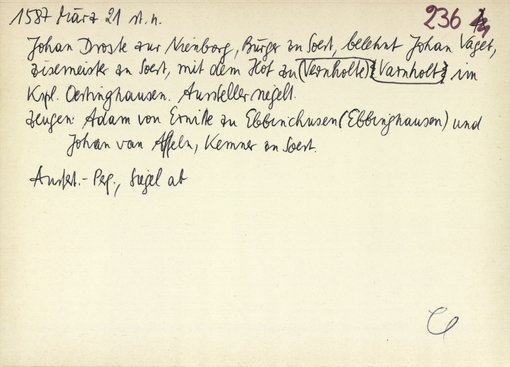 1587 März 21 st. n. 236
Johan Droste zur Nienborg, Bürger zu Soest, belehnt Johan Vaget,
zisemeister zu Soest, mit dem Hof zu (Vernholte) (Varnholt) im
Kspl. Oestinghausen. Aussteller siegelt.
Zeugen: Adam von Ermite zu Ebbinchusen (Ebbinghausen) und
Johan van Affeln, Kemner zu Soest.
Ausfert.-Perg., Siegel ab